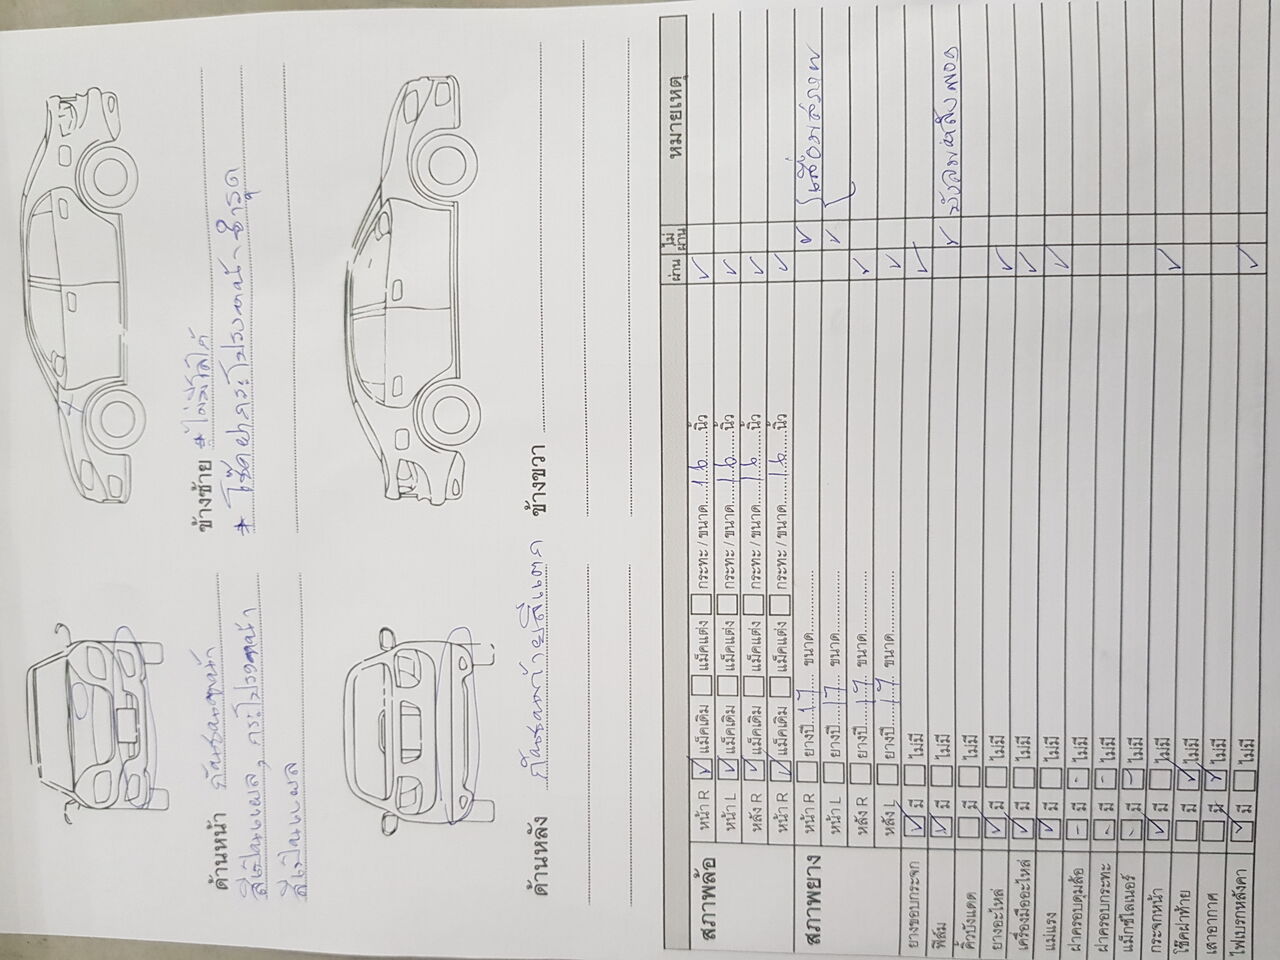 ด้านหน้า กันชนหน้า
สีเป็นแผล, กระโปรงหน้า
สีเป็นแผล
ข้างซ้าย * ไม่มีโลโก้
* โช๊คฝากระโปรงหน้า ชำรุด
ด้านหลัง กันชนท้ายสีแตก
ข้างขวา
ผ่าน ไม่ผ่าน หมายเหตุ
สภาพล้อ หน้า R แม็คเดิม แม็คแต่ง กระทะ / ขนาด 16 นิ้ว
หน้า L แม็คเดิม แม็คแต่ง กระทะ / ขนาด 16 นิ้ว
หลัง R แม็คเดิม แม็คแต่ง กระทะ / ขนาด 16 นิ้ว
หน้า R แม็คเดิม แม็คแต่ง กระทะ / ขนาด 16 นิ้ว
สภาพยาง หน้า R ยางปี 17 ขนาด เสื่อมสภาพ
หน้า L ยางปี 17 ขนาด
หลัง R ยางปี 17 ขนาด
หลัง L ยางปี 17 ขนาด
ยางขอบกระจก มี ไม่มี
ฟิล์ม มี ไม่มี
คิ้วบังแดด มี ไม่มี
ยางอะไหล่ มี ไม่มี
เครื่องมืออะไหล่ มี ไม่มี
แม่แรง มี ไม่มี
ฝาครอบดุมล้อ มี ไม่มี
ฝาครอบกระทะ มี ไม่มี
แม็กซ์ไลเนอร์ มี ไม่มี
กระจกหน้า มี ไม่มี
โช๊คฝาท้าย มี ไม่มี
เสาอากาศ มี ไม่มี
ไฟเบรกหลังคา มี ไม่มี